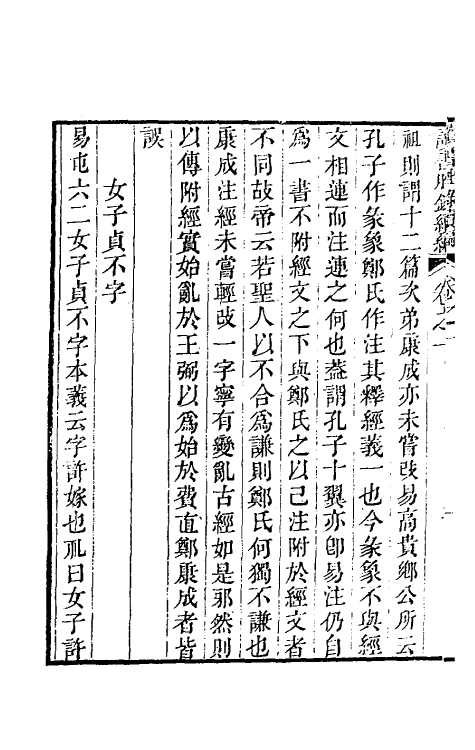 讀書脞錄續編 卷之一 一
祖則謂十二篇次弟康成亦未嘗改易高貴鄉公所云
孔子作彖象鄭氏作注其釋經義一也今彖象不與經
文相連而注連之何也葢謂孔子十翼亦卽易注仍自
爲一書不附經文之下與鄭氏之以己注附於經文者
不同故帝云若聖人以不合爲謙則鄭氏何獨不謙也
康成注經未嘗輕改一字寧有變亂古經如是邪然則
以傳附經實始亂於王弼以爲始於費直鄭康成者皆
誤
女子貞不字
易屯六二女子貞不字本義云字許嫁也禮曰女子許